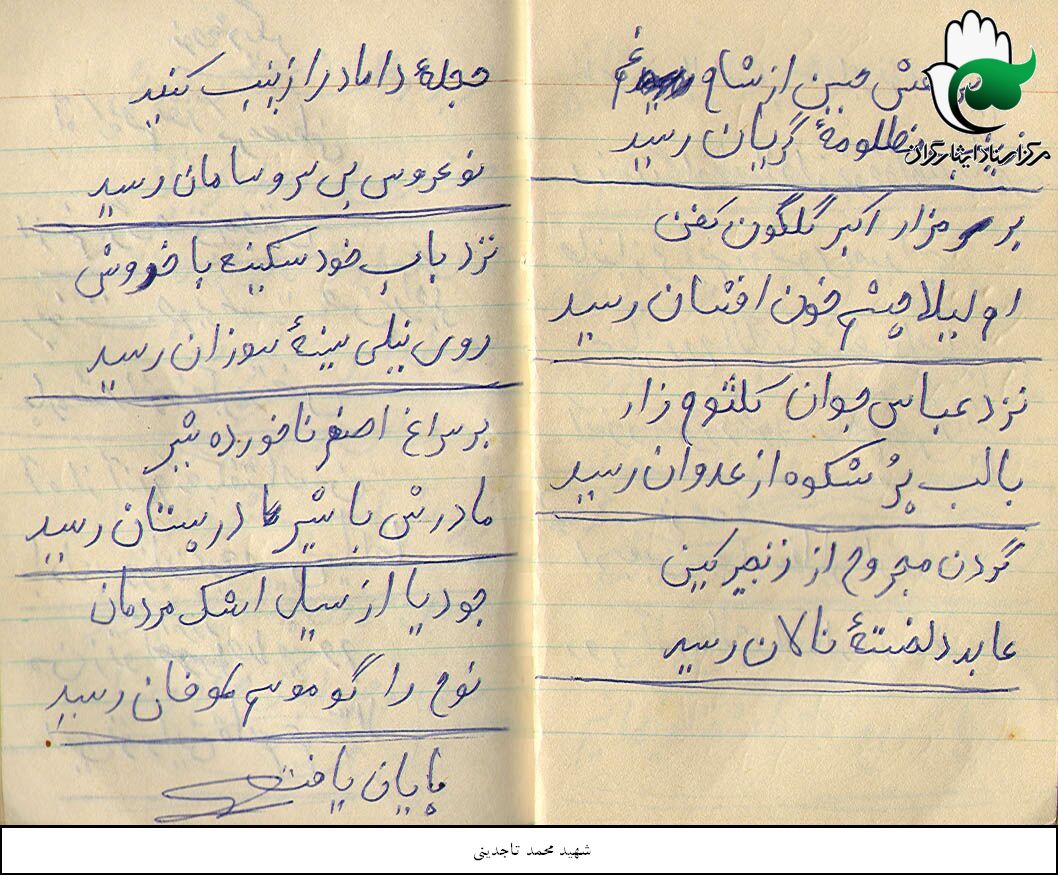 مرکز اسناد ایثارگران
نعش حسین از شام غم
مظلومهٔ گریان رسید
بر مزار اکبر گلگون کفن
ام لیلا چشم خون افشان رسید
نزد عباس جوان کلثوم زار
با لب پُر شکوه از عدوان رسید
گردن مجروح از زنجیر کین
عابد دلخستهٔ نالان رسید
حجلهٔ داماد را زینت کنید
نو عروس بی سر و سامان رسید
نزد باب خود سکینه با خروش
روی نیلی سینهٔ سوزان رسید
بر سراغ اصغر ناخورده شیر
مادرش با شیر در پستان رسید
جودیا از سیل اشک مردمان
نوح را گو موسم طوفان رسید
پایان یافت
شهید محمد تاجدینی